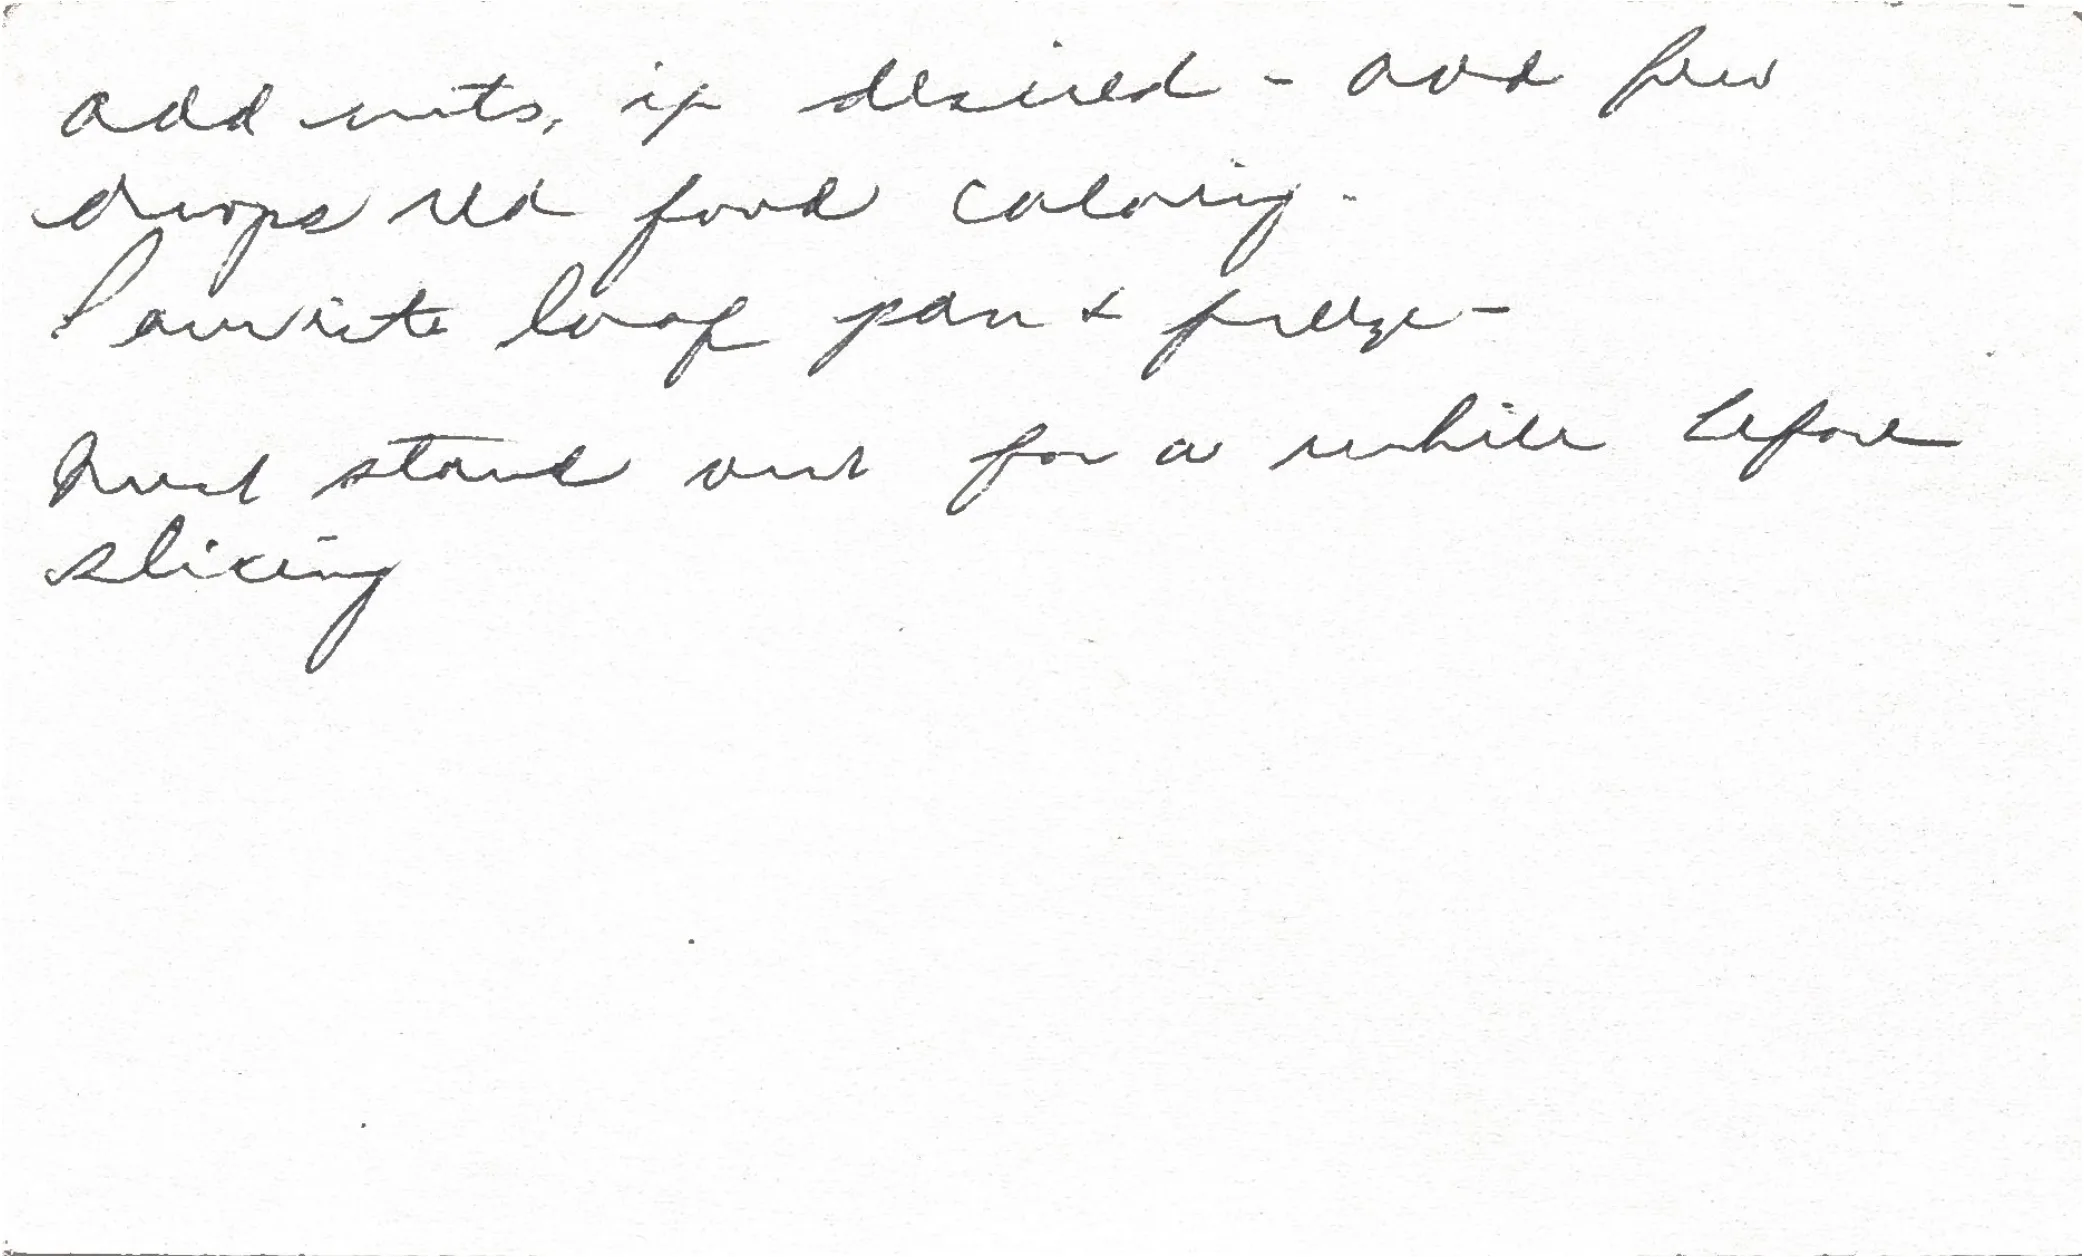 add nuts, if desired - and few
drops red food coloring.
Pour into loaf pan & freeze -
Must stand out for a while before
slicing